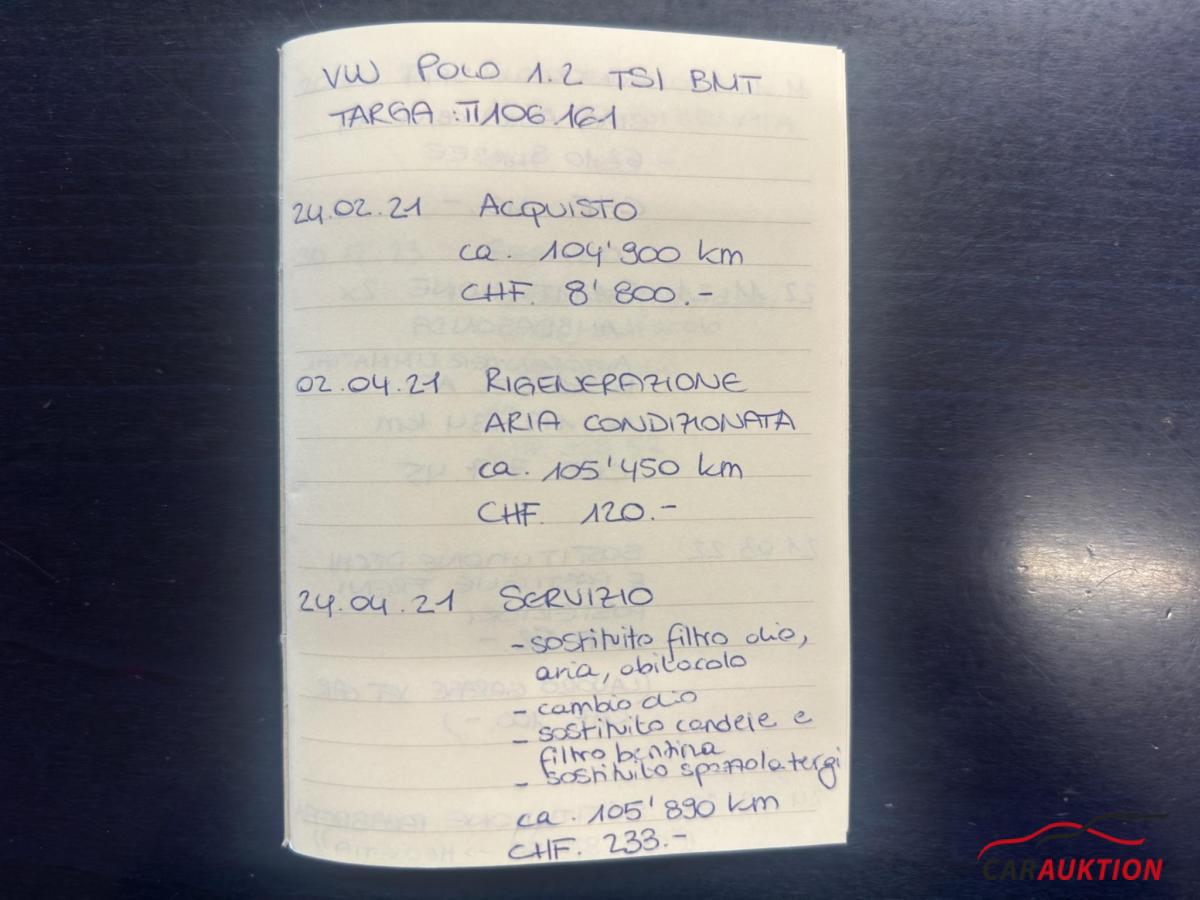 VW POLO 1.2 TSI BMT
TARGA: TI106 161
24.02.21 ACQUISTO
ca. 104'900 km
CHF. 8'800.-
02.04.21 RIGENERAZIONE
ARIA CONDIZIONATA
ca. 105'450 km
CHF. 120.-
24.04.21 SERVIZIO
- sostituito filtro olio,
aria, abitacolo
- cambio olio
- sostituito candele e
filtro benzina
- sostituito spazzola tergi
ca. 105'890 km
CHF. 233.-
CARAUKTION